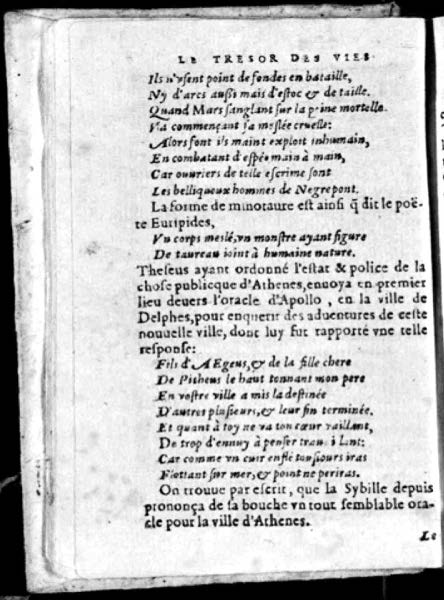 LE TRESOR DES VIES
Ils n'vsent point de fondes en bataille,
Ny d'arcs außi mais d'estoc & de taille.
Quand Mars sanglant sur la pleine mortelle
Va commençant sa meslée cruelle:
Alors font ils maint exploit inhumain,
En combatant d'espée main à main,
Car ouuriers de telle escrime sont
Les belliqueux hommes de Negrepont.
La forme de minotaure est ainsi q̃ dit le poë-
te Euripides,
Vn corps meslé, vn monstre ayant figure
De taureau ioint à humaine nature.
Theseus ayant ordonné l'estat & police de la
chose publicque d'Athenes, enuoya en premier
lieu deuers l'oracle d'Apollo, en la ville de
Delphes, pour enquerir des aduentures de ceste
nouuelle ville, dont luy fut rapporté vne telle
response:
Fils d'AEgeus, & de la fille chere
De Pitheus le haut tonnant mon pere
En vostre ville a mis la destinée
D'autres plusieurs, & leur fin terminée.
Et quant à toy ne va ton cœur vaillant,
De trop d'ennuy à penser trauaillant:
Car comme vn cuir enflé tousiours iras
Flottant sur mer, & point ne periras.
On trouue par escrit, que la Sybille depuis
prononça de sa bouche vn tout semblable ora-
cle pour la ville d'Athenes.
Le